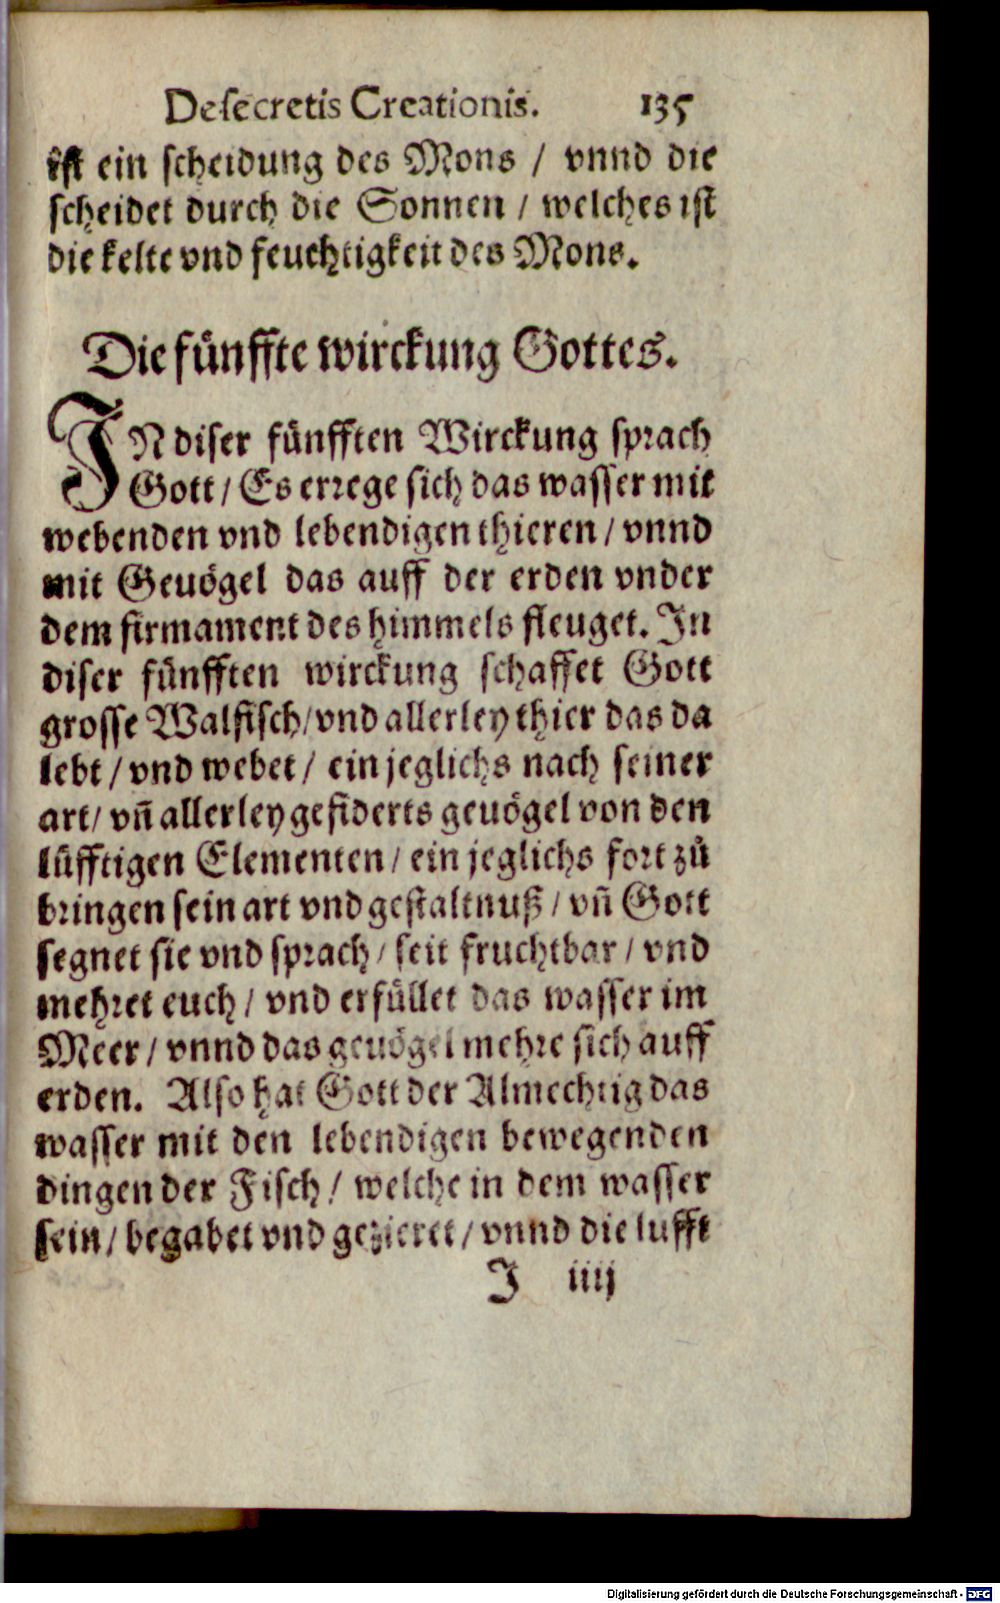 De secretis Creationis. 135
ist ein scheidung des Mons / vnnd die
scheidet durch die Sonnen / welches ist
die kelte vnd feuchtigkeit des Mons.
Die fünffte wirckung Gottes.
IN diser fünfften Wirckung sprach
Gott / Es errege sich das wasser mit
webenden vnd lebendigen thieren / vnnd
mit Geuögel das auff der erden vnder
dem firmament des himmels fleuget. In
diser fünfften wirckung schaffet Gott
grosse Walfisch / vnd allerley thier das da
lebt / vnd webet / ein jeglichs nach seiner
art / vñ allerley gefiderts geuögel von den
lüfftigen Elementen / ein jeglichs fort zů
bringen sein art vnd gestaltnuß / vñ Gott
segnet sie vnd sprach / seit fruchtbar / vnd
mehret euch / vnd erfüllet das wasser im
Meer / vnnd das geuögel mehre sich auff
erden. Also hat Gott der Almechtig das
wasser mit den lebendigen bewegenden
dingen der Fisch / welche in dem wasser
sein / begabet vnd gezieret / vnnd die lufft
I iiij
Digitalisierung gefördert durch die Deutsche Forschungsgemeinschaft - DFG